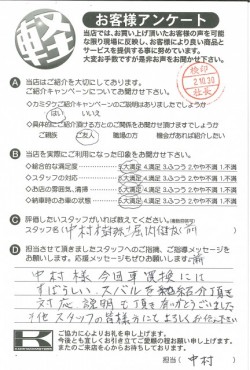 軽
お客様アンケート
当店では、お買い上げ頂いたお客様の声を可能
な限り現場に反映し、お客様により良い商品と
サービスを提供する事に努めています。
大変お手数ですが是非お声をお聞かせ下さい。
A 当店はご紹介を大切にしております。
ご紹介キャンペーンについてお聞かせ下さい
・カミタケご紹介キャンペーンのご説明はありましたでしょうか
はい いいえ
・具体的にご紹介頂ける方とのご関係をお聞かせ頂けますでしょうか
ご親戚 ご友人 職場の方 機会があれば紹介したい
B 当店を実際にご利用になった印象をお聞かせ下さい。
総合的な満足度 5.大満足 4.満足 3.ふつう 2.やや不満 1.不満
スタッフの対応 5.大満足 4.満足 3.ふつう 2.やや不満 1.不満
お店の雰囲気、清掃 5.大満足 4.満足 3.ふつう 2.やや不満 1.不満
納車時のお車の状態 5.大満足 4.満足 3.ふつう 2.やや不満 1.不満
C 評価したいスタッフがいれば教えてください。
スタッフ名( 中村
D 担当させて頂きましたスタッフへのご指摘、ご指導メッセージを
お願いします。応援メッセージもぜひお願いします。
中村様 今回車選択には
すばらしい スバルを 紹介頂き
対応 説明も頂き ありがとうございました
他スタッフの皆様方にてよろしくお伝えください
ご協力に心よりお礼を申し上げます。
今後とも宜しくお引き立てご愛顧の程お願い申し上げます。
またのご来店を心からお待ちしております。
担当( 中村 )